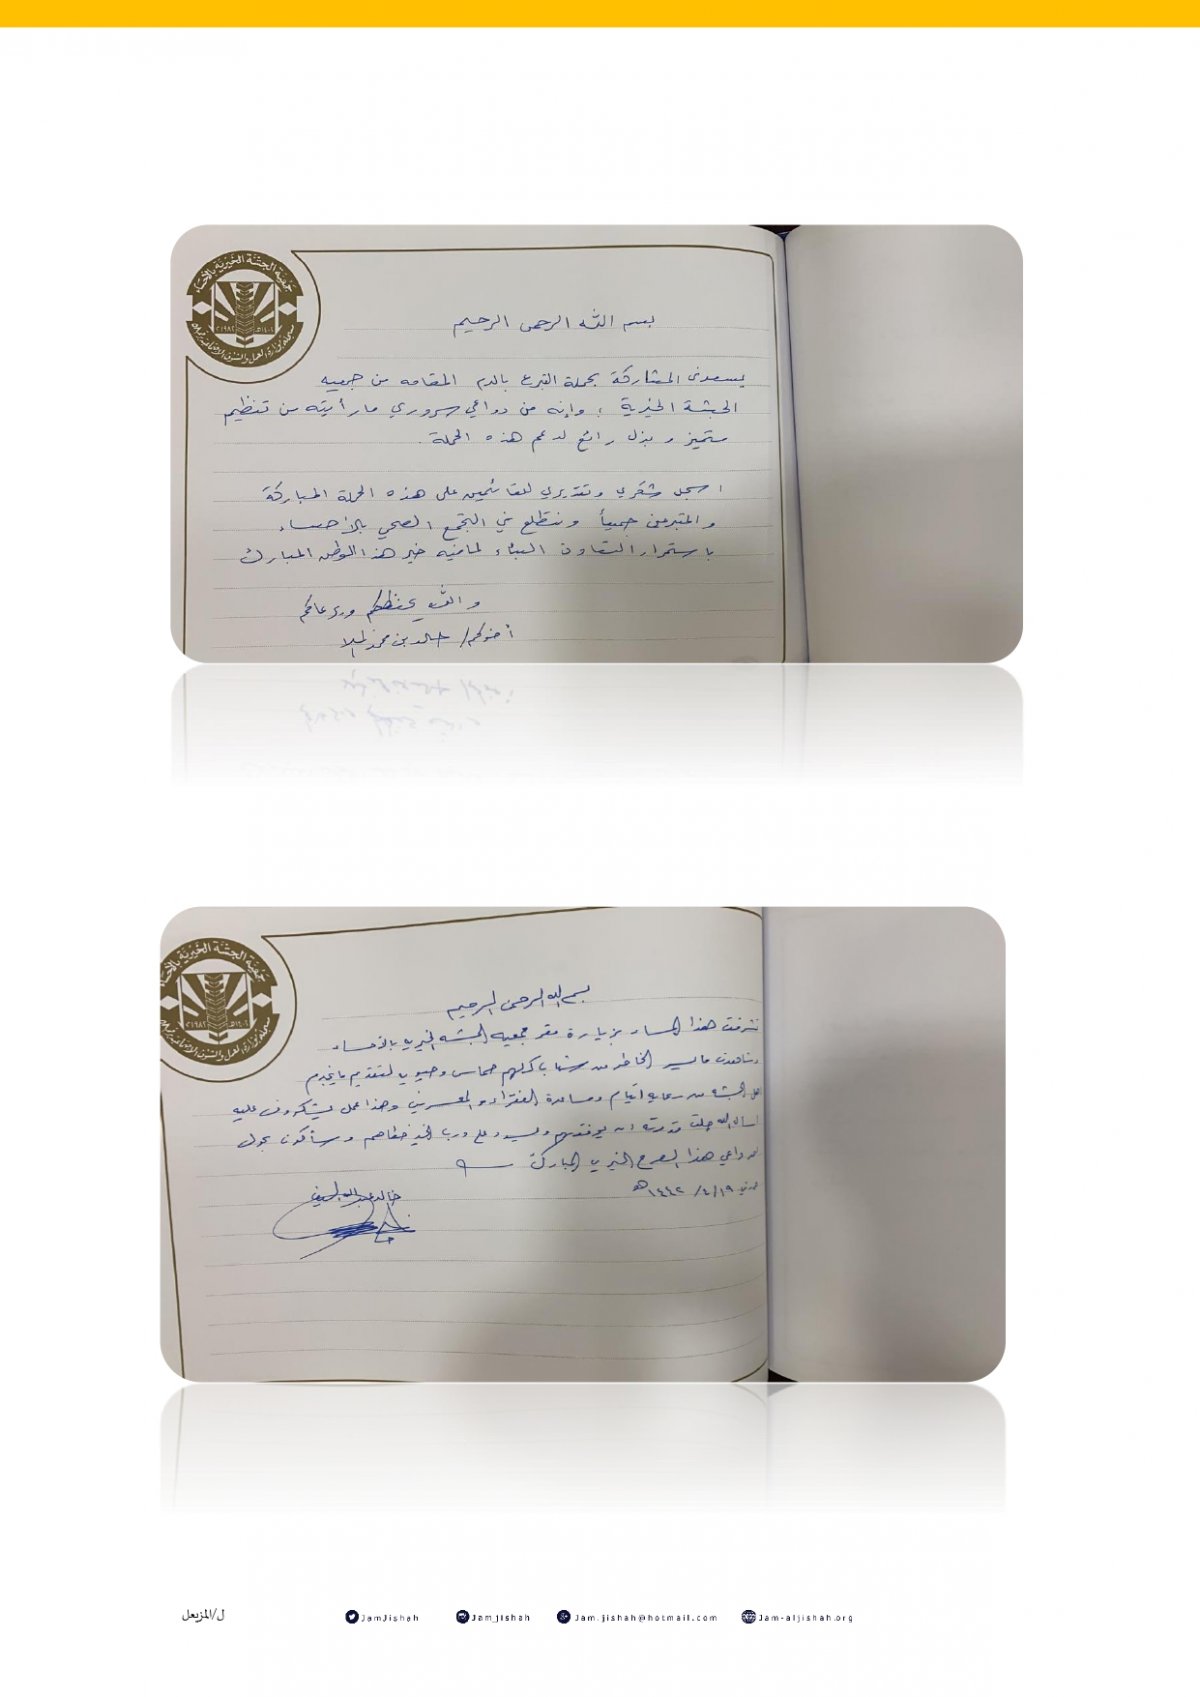 جمعية الجشة الخيرية بالأحساء
١٤٠٢هـ ١٩٨٢م
بسم الله الرحمن الرحيم
يسعدني المشاركة بحملة التبرع بالدم المقامه من جمعيه
الجشة الخيرية ، وإنه من دواعي سروري ما رأيته من تنظيم
متميز و بذل رائع لدعم هذه الحملة .
اسجل شكري وتقديري للقائمين على هذه الحملة المباركة
والمتبرعين جميعاً ونتطلع في التجمع الصحي بالاحساء
باستمرار التعاون البناء لمافيه خير هذا الوطن المبارك
والله يحفظكم ويرعاكم
أخوكم/ خالد بن محمد الملا
جمعية الجشة الخيرية بالأحساء
١٤٠٢هـ ١٩٨٢م
بسم الله الرحمن الرحيم
تشرفت هذا المساء بزيارة مقر جمعيه الجشه الخيريه بالاحساء
وشاهدت ما يسر الخاطر من شباب كلهم حماس وحيويه لتقديم ما يخدم
اهل الجشه من رعايه أيتام ومساعدة الفقراء و المعسرين وهذا عمل يشكرون عليه
اسأل الله جلت قدرته ان يوفقهم ويسدد على درب الخير خطاهم وسأكون بحول
الله داعي هذا الصرح الخيري المبارك
١٤٤٢/٤/١٩هـ
خالد عبدالله
ل/المزيعل
JamJishah
Jam_jishah
Jam.jishah@hotmail.com
Jam-aljishah.org